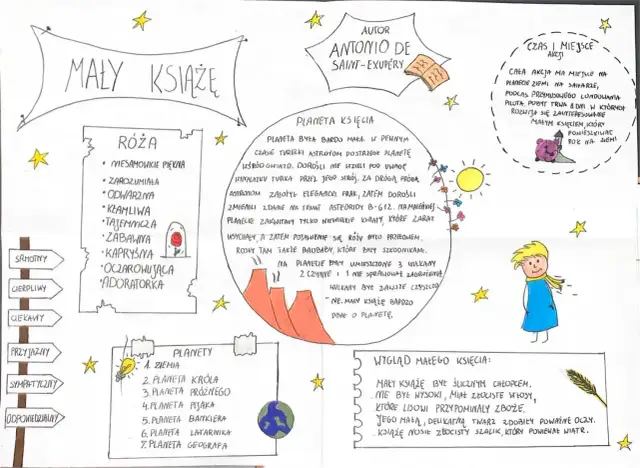 MAŁY KSIĄŻĘ
AUTOR
ANTONIO DE
SAINT-EXUPÉRY
CZAS I MIEJSCE
AKCJI
CAŁA AKCJA MA MIEJSCE NA
PLANECIE ZIEMI NA SAHARZE,
PODCZAS PRZYMUSOWEGO LĄDOWANIA
PILOTA. POBYT TRWA 8 DNI W KTÓRYCH
ROZWIJA SIĘ ZAINTERESOWANIE
MAŁYM KSIĘCIEM, KTÓRY
ROK NA ZIEMI
RÓŻA
• NIESAMOWICIE PIĘKNA
• ZAROZUMIAŁA
• ODWAŻNA
• KŁAMLIWA
• TAJEMNICZA
• ZABAWNA
• KAPRYŚNA
• OCZAROWUJĄCA
• ADORATORKA
PLANETA KSIĘCIA
PLANETA BYŁA BARDO MAŁA W PEWNYM
CZASIE TURECKI ASTRONOM DOSTRZEGŁ PLANETĘ
WŚRÓD GWIAZD. DOROŚLI NIE WZIĘLI POD UWAGĘ
TURKA PRZEZ JEGO STRÓJ. ZA DRUGĄ PRÓBĄ
ASTRONOM ZAŁOŻYŁ ELEGANCKI FRAK, ZATEM DOROŚLI
ZMIENILI ZDANIE NA TEMAT ASTEROIDY B-612. NA MALEŃKIEJ
PLANECIE ZAKWITAŁY TYLKO NIEWIELKIE KWIATY, KTÓRE ZARAZ
USYCHAŁY, A ZATEM POJAWIENIE SIĘ RÓŻY BYŁO PRZEŁOMEM.
ROSŁY TAM TAKŻE BAOBABY, KTÓRE BYŁY SZKODNIKAMI.
NA PLANECIE BYŁY UMIESZCZONE 3 WULKANY
2 CZYNNE I 1 NIE SPRAWIAŁ ZAGROŻENIA
WULKANY BYŁY ZAWSZE CZYSZCZO-
NE. MAŁY KSIĄŻĘ BARDZO
DBAŁ O PLANETĘ.
SAMOTNY
CIERPLIWY
CIEKAWY
PRZYJAZNY
SYMPATYCZNY
ODPOWIEDZIALNY
PLANETY
1. ZIEMIA
2. PLANETA KRÓLA
3. PLANETA PRÓŻNEGO
4. PLANETA PIJAKA
5. PLANETA BANKIERA
6. PLANETA LATARNIKA
7. PLANETA GEOGRAFA
WYGLĄD MAŁEGO KSIĘCIA:
MAŁY KSIĄŻĘ BYŁ ŚLICZNYM CHŁOPCEM.
NIE BYŁ WYSOKI, MIAŁ ZŁOCISTE WŁOSY,
KTÓRE LISOWI PRZYPOMINAŁY ZBOŻE.
JEGO MAŁĄ, DELIKATNĄ TWARZ ZDOBIŁY POWAŻNE OCZY.
KSIĄŻĘ NOSIŁ ZŁOCISTY SZALIK, KTÓRY POWIEWAŁ WIATR.